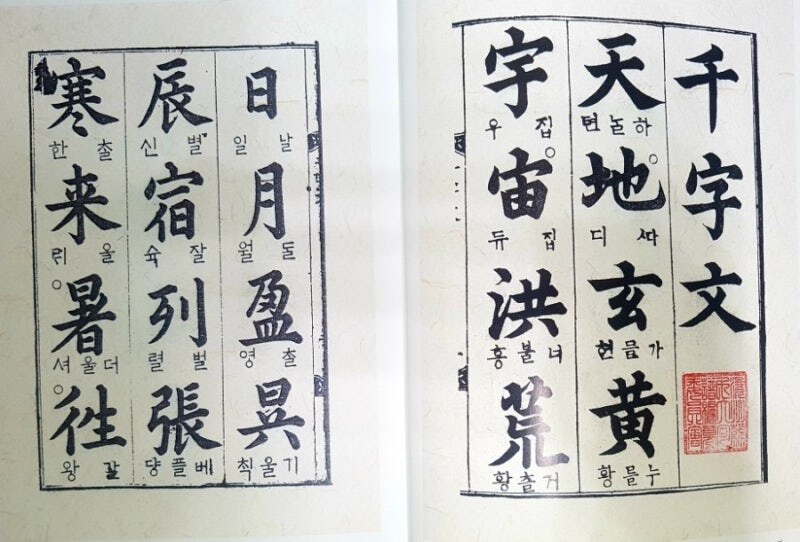 千字文
天 하ᄂᆞᆯ 텬
地 ᄯᅡ 디
玄 가믈 현
黃 누를 황
宇 집 우
宙 집 듀
洪 너블 홍
荒 거츨 황
日 날 일
月 ᄃᆞᆯ 월
盈 ᄎᆞᆯ 영
昗 기울 칙
辰 별 신
宿 잘 슉
列 벌 렬
張 베플 댱
寒 ᄎᆞᆯ 한
来 올 ᄅᆡ
暑 더울 셔
徃 갈 왕